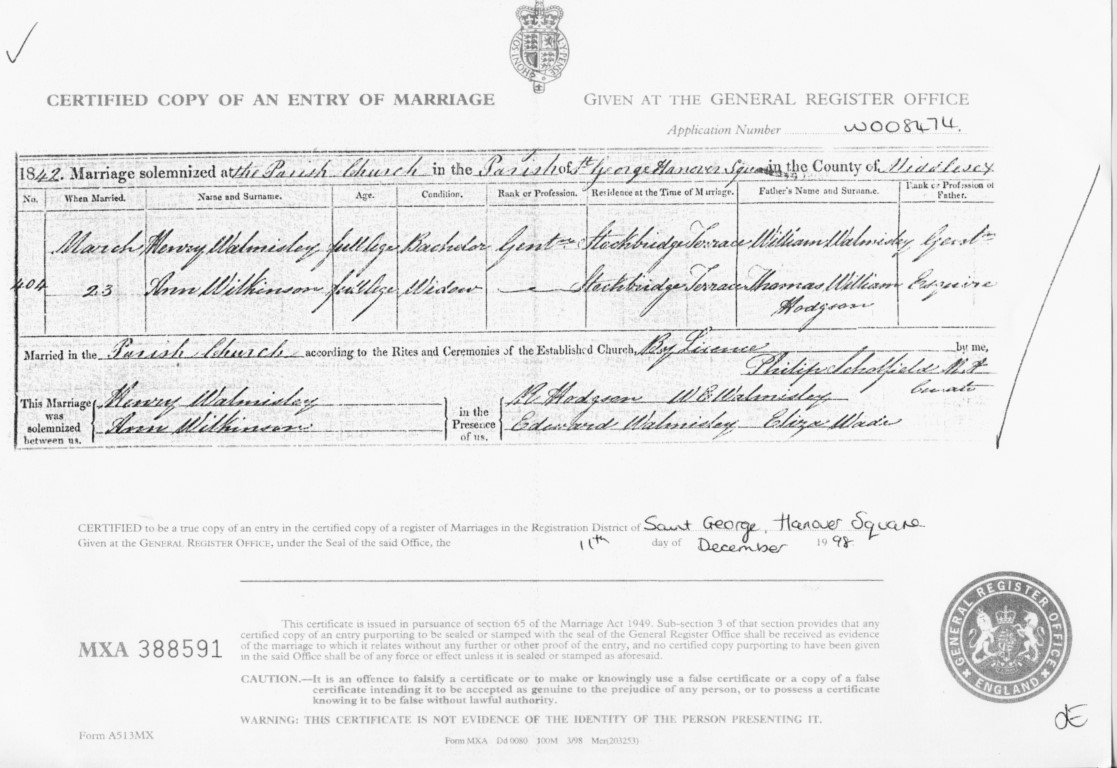 CERTIFIED COPY OF AN ENTRY OF MARRIAGE
GIVEN AT THE GENERAL REGISTER OFFICE
Application Number W008474.
1842. Marriage solemnized at the Parish Church in the Parish of St George Hanover Square in the County of Middlesex
No. When Married. Name and Surname. Age. Condition. Rank or Profession. Residence at the Time of Marriage. Father's Name and Surname. Rank or Profession of Father.
March Henry Walmisley full age Bachelor Gentn Stockbridge Terrace William Walmisley Gentn
404 23 Ann Wilkinson full age Widow — Stockbridge Terrace Thomas William Hodgson Esquire
Married in the Parish Church according to the Rites and Ceremonies of the Established Church, By Licence by me,
Philip Scholfield M A
Curate
This Marriage was solemnized between us, Henry Walmisley
Ann Wilkinson
in the Presence of us, R Hodgson W E Walmisley
Edward Walmisley Eliza Wade
CERTIFIED to be a true copy of an entry in the certified copy of a register of Marriages in the Registration District of Saint George, Hanover Square
Given at the GENERAL REGISTER OFFICE, under the Seal of the said Office, the 11th day of December 1998
This certificate is issued in pursuance of section 65 of the Marriage Act 1949. Sub-section 3 of that section provides that any
certified copy of an entry purporting to be sealed or stamped with the seal of the General Register Office shall be received as evidence
of the marriage to which it relates without any further or other proof of the entry, and no certified copy purporting to have been given
in the said Office shall be of any force or effect unless it is sealed or stamped as aforesaid.
MXA 388591
CAUTION.—It is an offence to falsify a certificate or to make or knowingly use a false certificate or a copy of a false
certificate intending it to be accepted as genuine to the prejudice of any person, or to possess a certificate
knowing it to be false without lawful authority.
WARNING: THIS CERTIFICATE IS NOT EVIDENCE OF THE IDENTITY OF THE PERSON PRESENTING IT.
GENERAL REGISTER OFFICE
ENGLAND
Form A513MX
Form MXA Dd 0080 100M 3/98 Mcr(203253)